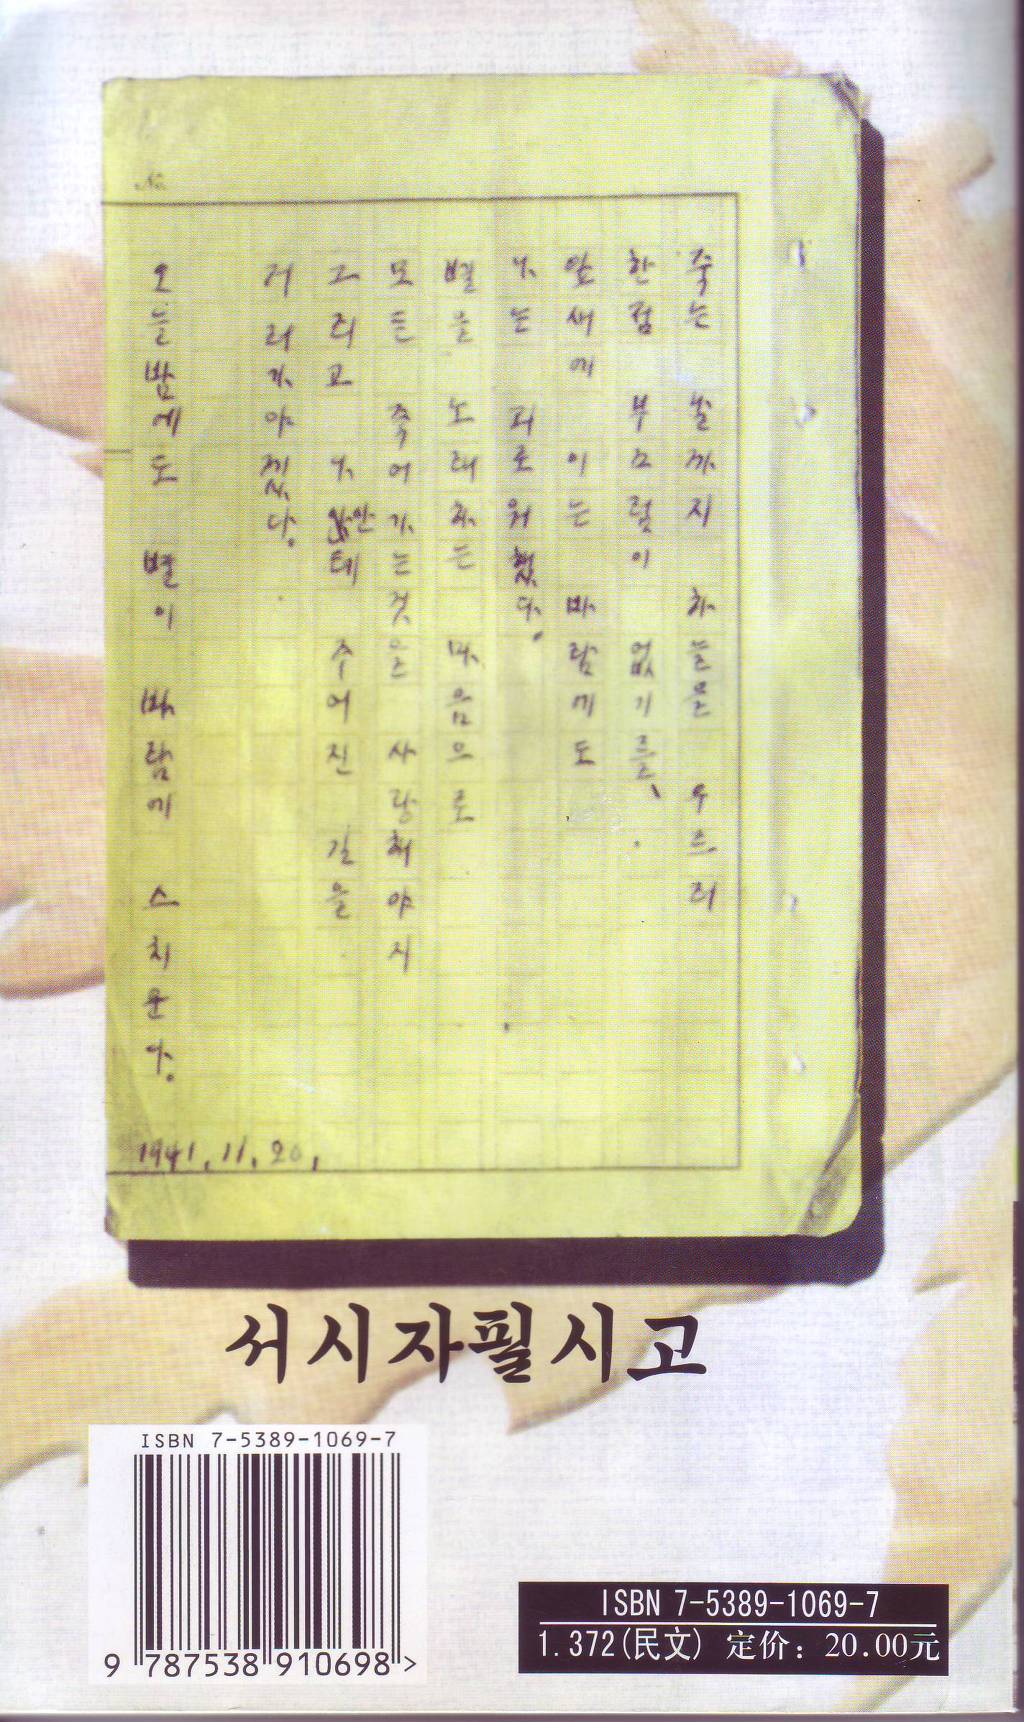 No.
죽는 날까지 하늘을 우르러
한점 부끄럼이 없기를、
잎새에 이는 바람에도
나는 괴로워했다.
별을 노래하는 마음으로
모든 죽어가는것을 사랑해야지
그리고 나안테 주어진 길을
거러가야겠다.
오늘밤에도 별이 바람에 스치운다.
1941.11.20.
서시자필시고
ISBN 7-5389-1069-7
9 787538 910698 >
ISBN 7-5389-1069-7
1.372(民文) 定价：20.00元